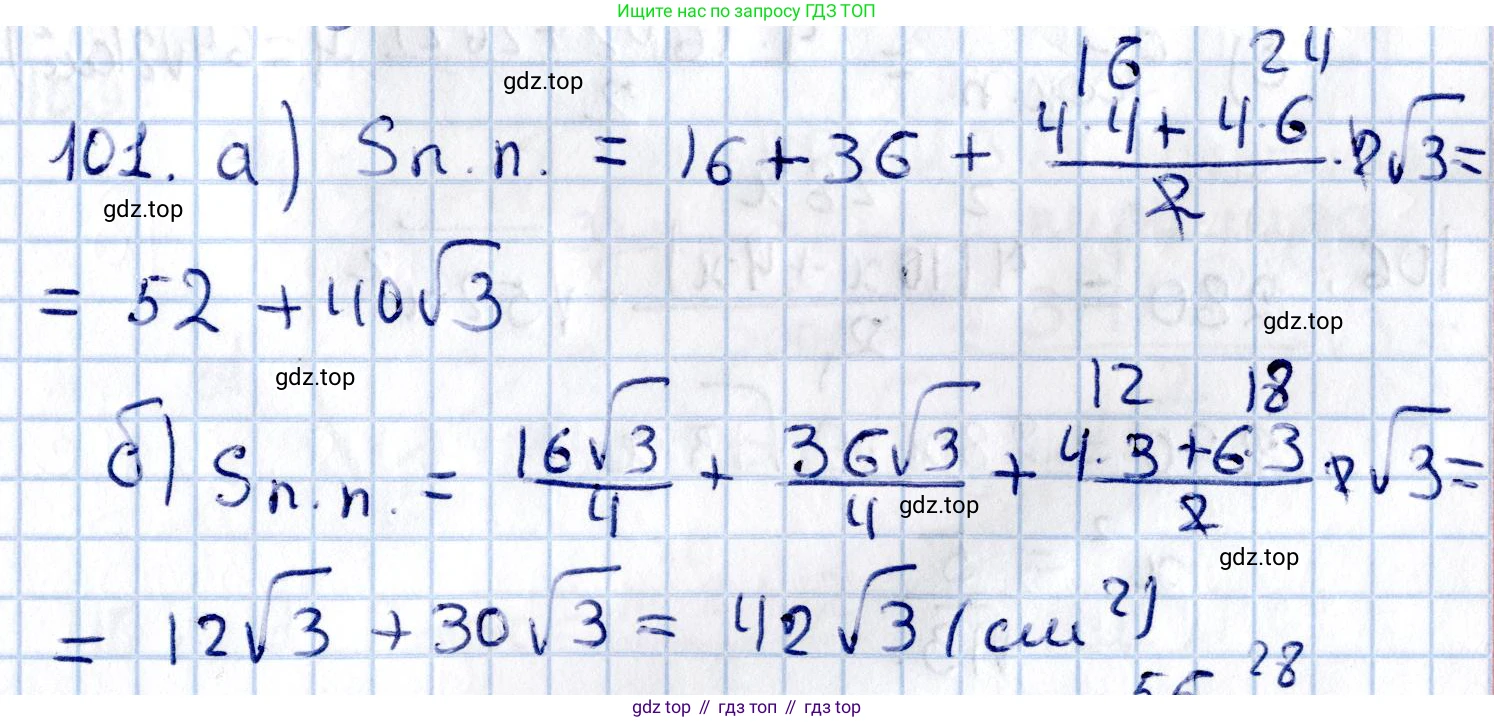 Ищите нас по запросу ГДЗ ТОП
gdz.top
16 24
101. а) Sп.п. = 16 + 36 + (4·4 + 4·6)/2 · 2√3 =
gdz.top
= 52 + 40√3
gdz.top
gdz.top
12 18
б) Sп.п. = 16√3/4 + 36√3/4 + (4·3 + 6·3)/2 · 2√3 =
gdz.top
gdz.top
= 12√3 + 30√3 = 42√3 (см²)
28
gdz.top // гдз топ // гдз top